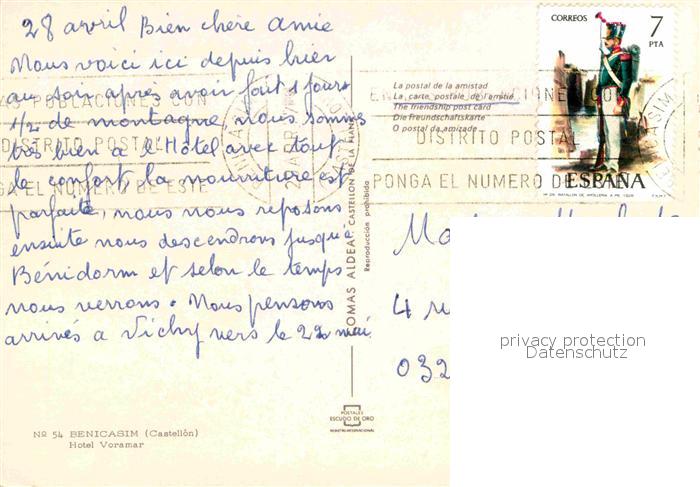 28 avril Bien chère amie
Nous voici ici depuis hier
au soir après avoir fait 1 jours
1/2 de montagne nous sommes
très bien à l'Hôtel avec tout
le confort la nourriture est
parfaite, nous nous reposons
ensuite nous descendrons jusqu'à
Bénidorm et selon le temps
nous verrons. Nous pensons
arriver à Vichy vers le 22 mai
Nº 54 BENICASIM (Castellón)
Hotel Voramar
TOMAS ALDEA, CASTELLON DE LA PLANA
Reproducción prohibida
POSTALES
ESCUDO DE ORO
La postal de la amistad
La carte postale de l'amitié
The friendship post card
Die Freundschaftskarte
O postal da amizade
POBLACIONES CON
DISTRITO POSTAL
PONGA EL NUMERO DE ESTE
DISTRITO POSTAL
PONGA EL NUMERO DE
CORREOS
7
PTA
ESPAÑA
4
032
privacy protection
Datenschutz